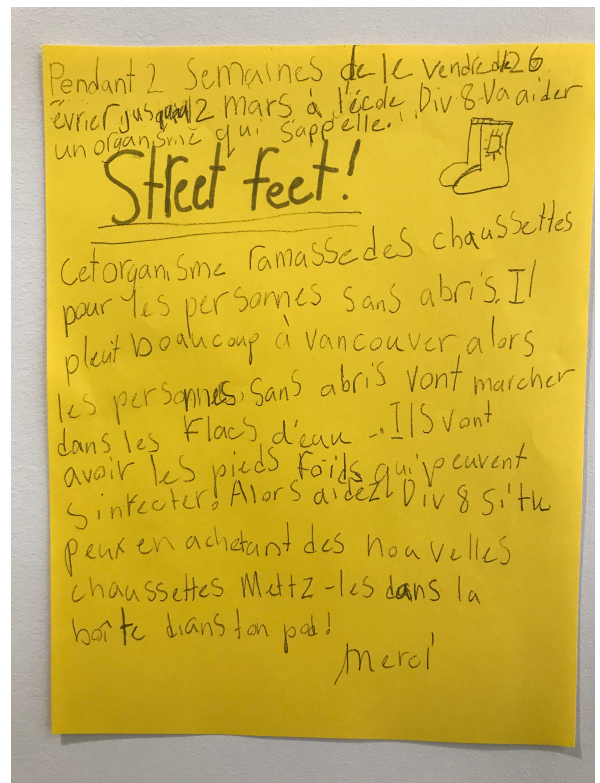 Pendant 2 Semaines de le vendredi 26
évrier jusquau 12 mars à l'école Div 8 Va aider
un organisme qui s'appelle...
Street feet!
Cet organisme ramasse des chaussettes
pour les personnes sans abris. Il
pleut boaucoup à Vancouver alors
les personnes sans abris vont marcher
dans les flacs d'eau. Ils vont
avoir les pieds foids qui peuvent
s'infecter! Alors aidez Div 8 si tu
peux en achetant des nouvelles
chaussettes Mettz-les dans la
boîte dans ton pod!
Merci